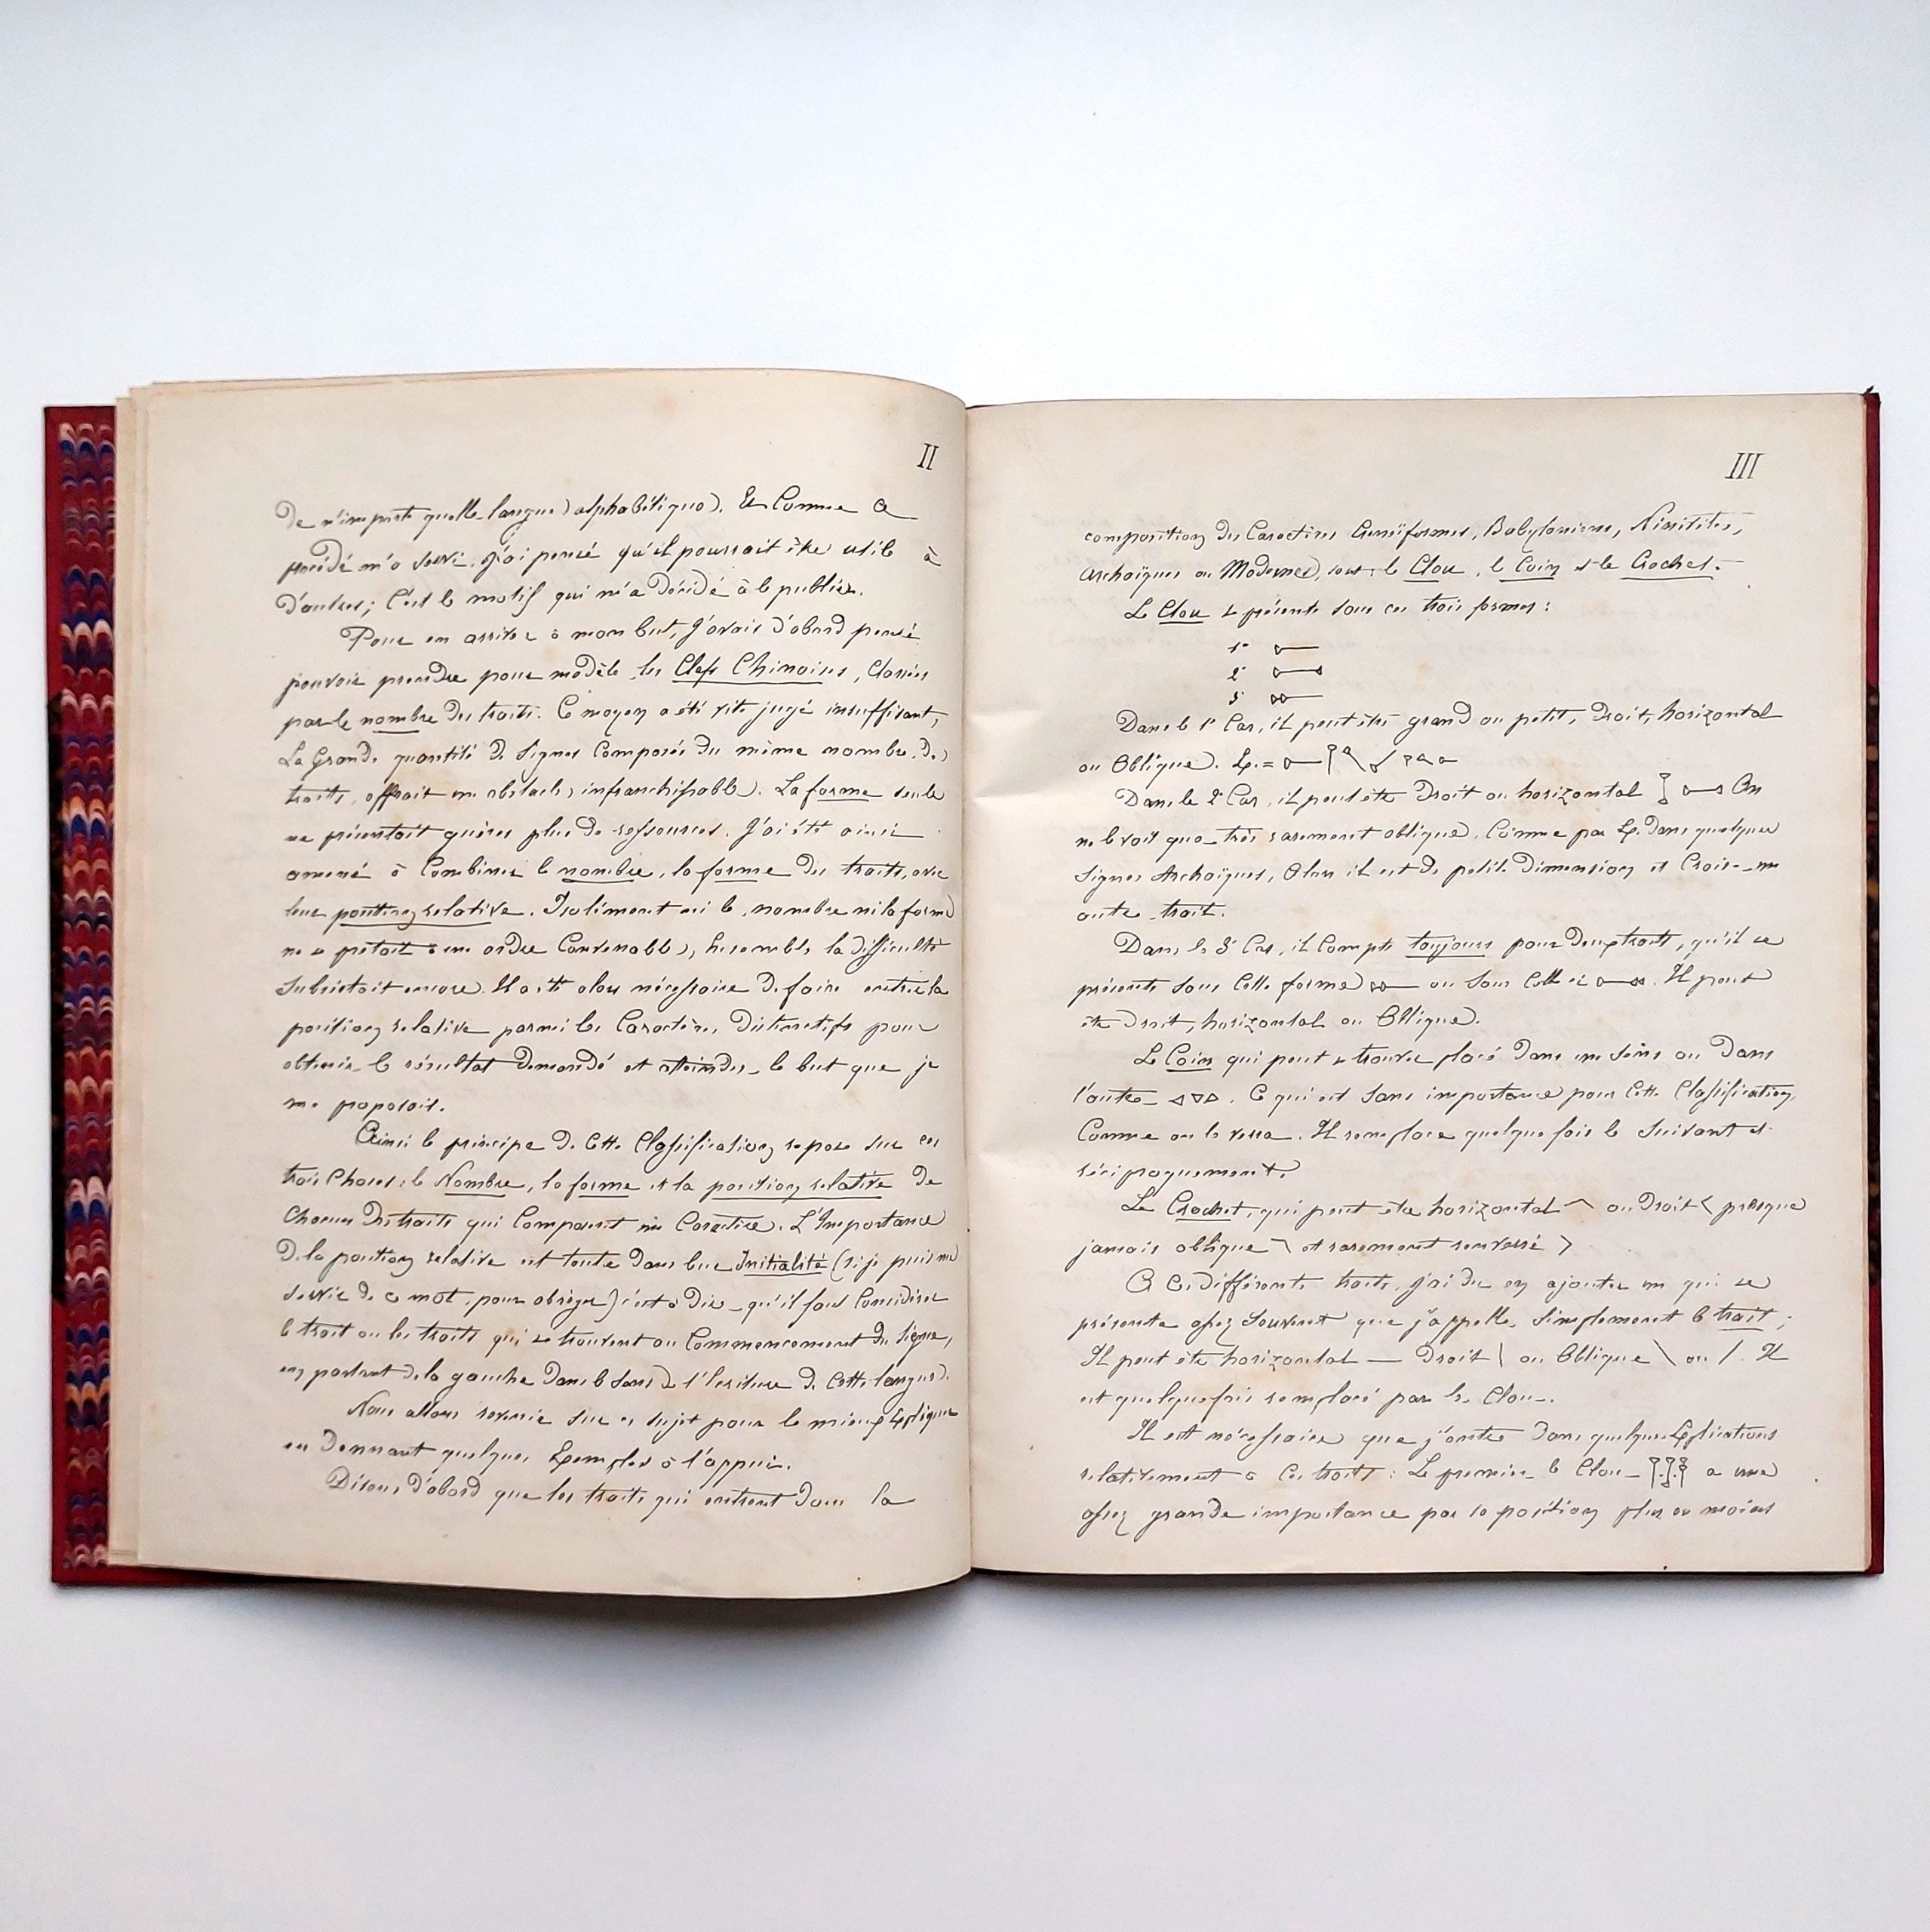 II
de n'importe quelle langue alphabétique. Et Comme ce
procédé m'a servi, j'ai pensé qu'il pourrait être utile à
d'autres; C'est le motif qui m'a décidé à le publier.
Pour en arriver à mon but, j'avais d'abord pensé
pouvoir prendre pour modèle les Clefs Chinoises, Classées
par le nombre des traits. Ce moyen a été vite jugé insuffisant,
La Grande quantité de Signes Composés du même nombre de
traits, offrait un obstacle infranchissable. La forme seule
ne présentait guères plus de ressources. J'ai été ainsi
amené à Combiner le nombre, la forme des traits, avec
leur position relative. Isolément ni le nombre ni la forme
ne se prêtait à un ordre Convenable, Ensemble la difficulté
Subsistait encore. Il a été alors nécessaire de faire entrer la
position relative parmi les Caractères distinctifs pour
obtenir le résultat demandé et atteindre le but que je
me proposais.
Ainsi le principe de Cette Classification repose sur ces
trois Choses: le Nombre, la forme et la position relative de
Chacun des traits qui Composent un Caractère. L'Importance
de la position relative est toute dans leur Initialité (si je puis me
servir de ce mot, pour abréger) c'est à dire qu'il faut Considérer
le trait ou les traits qui se trouvent au Commencement du Signe,
en partant de la gauche dans le Sens de l'Écriture de Cette langue.
Nous allons revenir sur ce sujet pour le mieux Expliquer
en donnant quelques Exemples à l'appui.
Disons d'abord que les traits qui entrent dans la
III
composition des Caractères Cunéiformes, Babyloniens, Ninivites,
Archaïques ou Modernes, sont: le Clou, le Coin et le Crochet.
Le Clou se présente sous ces trois formes:
1°
2°
3°
Dans le 1er Cas, il peut être grand ou petit, Droit, horizontal
ou Oblique. Ex. =
Dans le 2e Cas, il peut être Droit ou horizontal On
ne le voit que très rarement oblique, Comme par Ex. dans quelques
Signes Archaïques, Alors il est de petite Dimension et Croise un
autre trait.
Dans le 3e Cas, il Compte toujours pour deux traits, qu'il se
présente sous Cette forme ou sous Celle ci . Il peut
être Droit, horizontal ou Oblique.
Le Coin qui peut se trouver placé Dans un Sens ou Dans
l'autre . Ce qui est Sans importance pour Cette Classification,
Comme on le verra. Il remplace quelque fois le Suivant et
réciproquement.
Le Crochet, qui peut être horizontal ou Droit < presque
jamais oblique \ et rarement renversé >
A Ces différents traits, j'ai du en ajouter un qui se
présente assez Souvent que j'appelle Simplement le trait;
Il peut être horizontal — Droit | ou Oblique \ ou /. Il
est quelquefois remplacé par le Clou.
Il est nécessaire que j'entre Dans quelques Explications
relativement à Ces traits: Le premier le Clou a une
assez grande importance par sa position plus ou moins